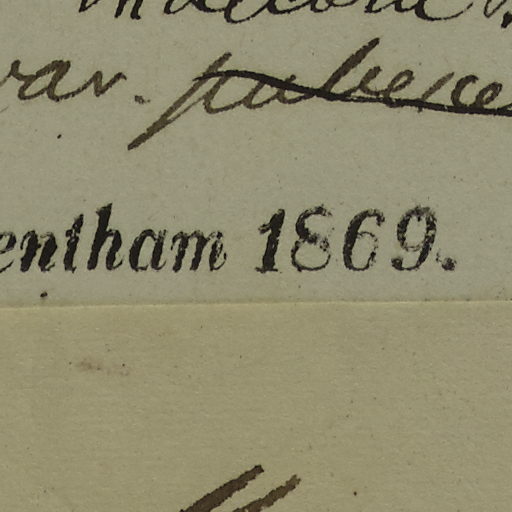 var. pubesce
entham 1869.